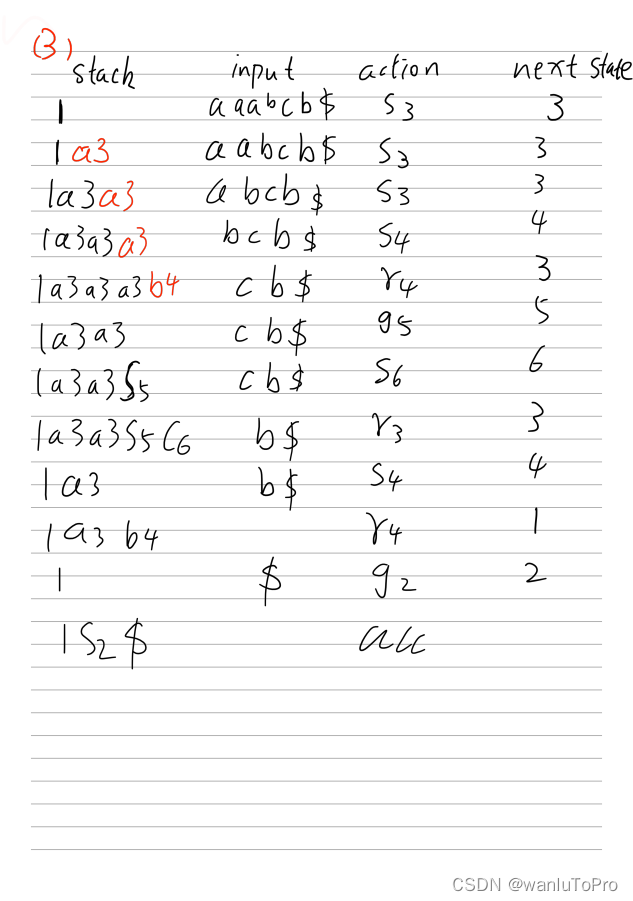 (3)
stack input action next state
1 a a a b c b $ S3 3
1 a3 a a b c b $ S3 3
1 a3 a3 a b c b $ S3 3
1 a3 a3 a3 b c b $ S4 4
1 a3 a3 a3 b4 c b $ r4 3
1 a3 a3 c b $ g5 5
1 a3 a3 S5 c b $ S6 6
1 a3 a3 S5 C6 b $ r3 3
1 a3 b $ S4 4
1 a3 b4 r4 1
1 $ g2 2
1 S2 $ acc
CSDN @wanluToPro